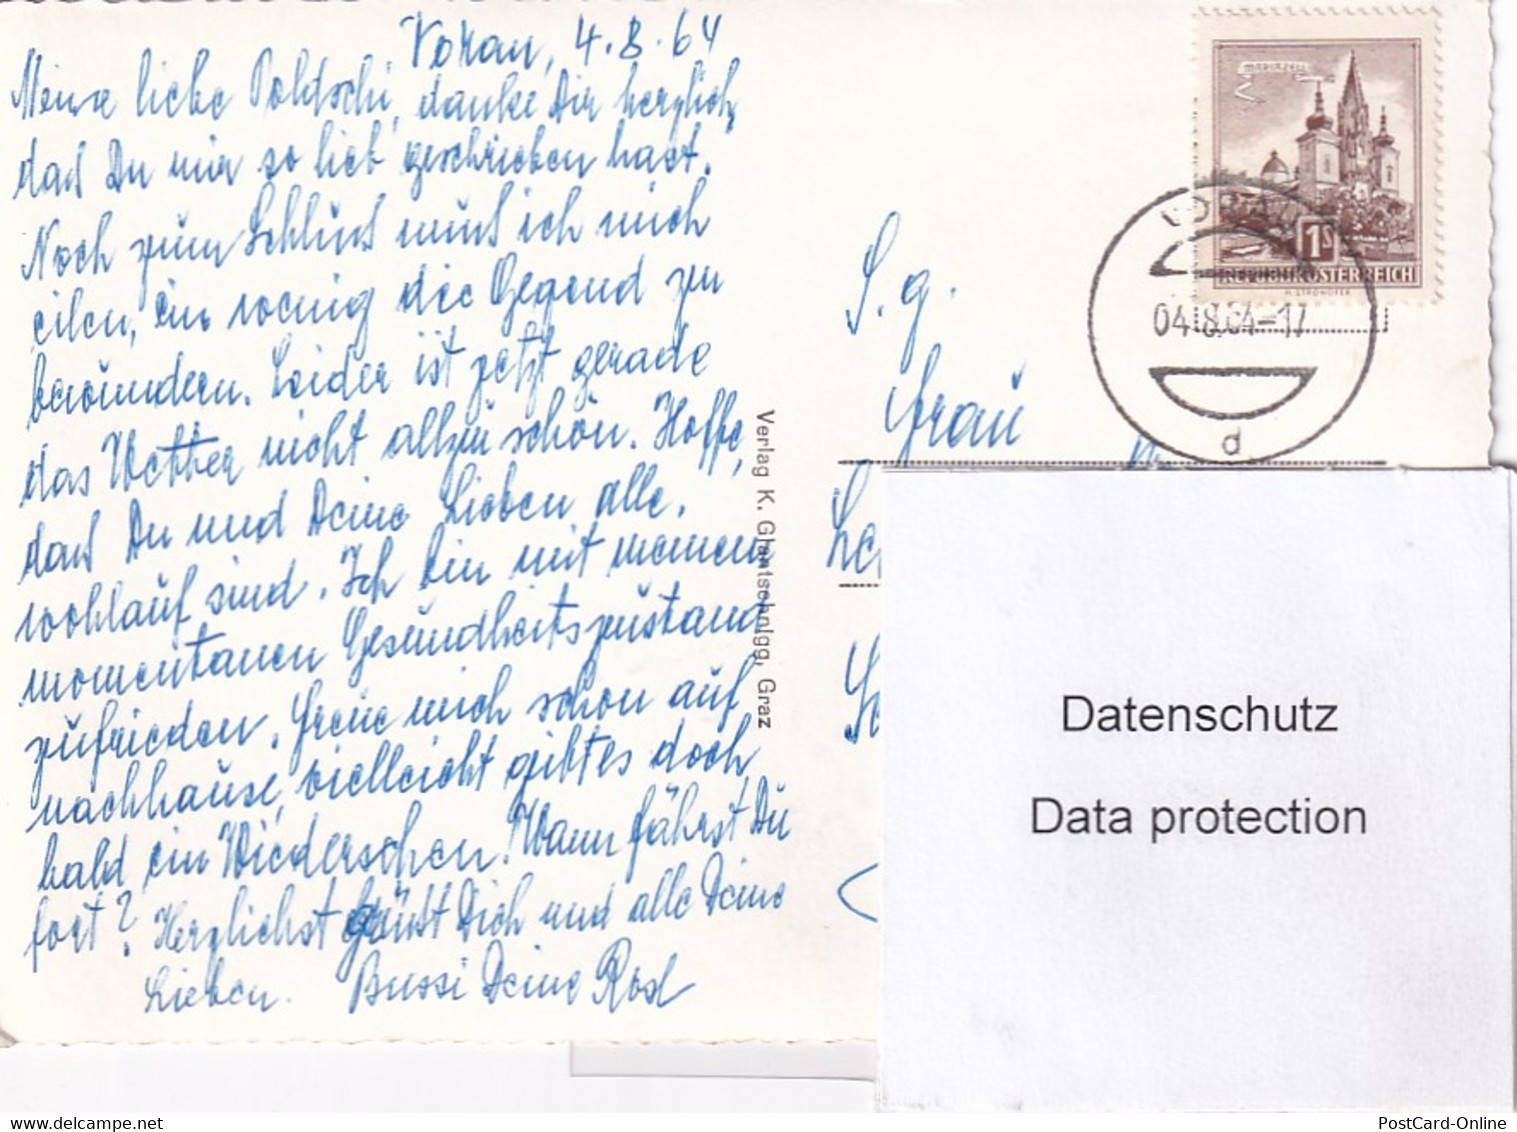 Vorau, 4.8.64
Meine liebe Poldschi, danke Dir herzlich,
daß Du mir so lieb geschrieben hast.
Noch zum Schluß muß ich mich
eilen, ein wenig die Gegend zu
bewundern. Leider ist jetzt gerade
das Wetter nicht allzu schön. Hoffe,
daß Du und Deine Lieben alle,
wohlauf sind. Ich bin mit meinem
momentanen Gesundheitszustand
zufrieden. Freue mich schon auf
nachhause, vielleicht gibt es doch
bald ein Wiedersehen. Wann fährst Du
fort? Herzlichst grüßt Dich und alle Deine
Lieben. Bussi Deine Rosl
Verlag K. Glantschnigg, Graz
MARIAZELL
1S
REPUBLIK ÖSTERREICH
H. STROHOFER
04.8.64-17
d
S. g.
Frau
Datenschutz
Data protection
PostCard-Online
www.delcampe.net